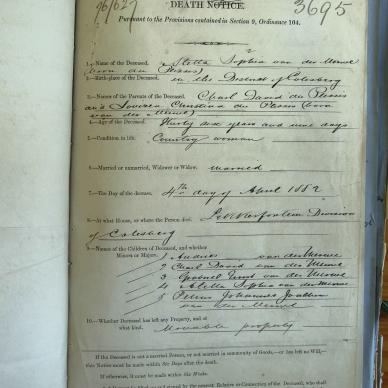 96/627
3695
DEATH NOTICE.
Pursuant to the Provisions contained in Section 9, Ordinance 104.
1.—Name of the Deceased, Aletta Sophia van der Merwe
(born du Plessis)
2.—Birth-place of the Deceased, in the District of Colesberg
3.—Names of the Parents of the Deceased, Charl David du Plessis
and Christina du Plessis (born
van der Merwe)
4.—Age of the Deceased, Thirty six years and nine days
5.—Condition in life, Country woman
6.—Married or unmarried, Widower or Widow, married
7.—The Day of the decease, 4th day of April 1882
8.—At what House, or where the Person died, Division
of Colesberg
9.—Names of the Children of Deceased, and whether
Minors or Majors,
1 Andries van der Merwe
2 Charl David van der Merwe
3 van der Merwe
4 Aletta Sophia van der Merwe
5 Petrus Johannes
van der Merwe
10.—Whether Deceased has left any Property, and of
what kind, Movable property
If the Deceased is not a married Person, or not married in community of Goods,—or has left no Will,—
this Notice must be made within Six Days after the Death.
If otherwise, it must be made within Six Weeks.